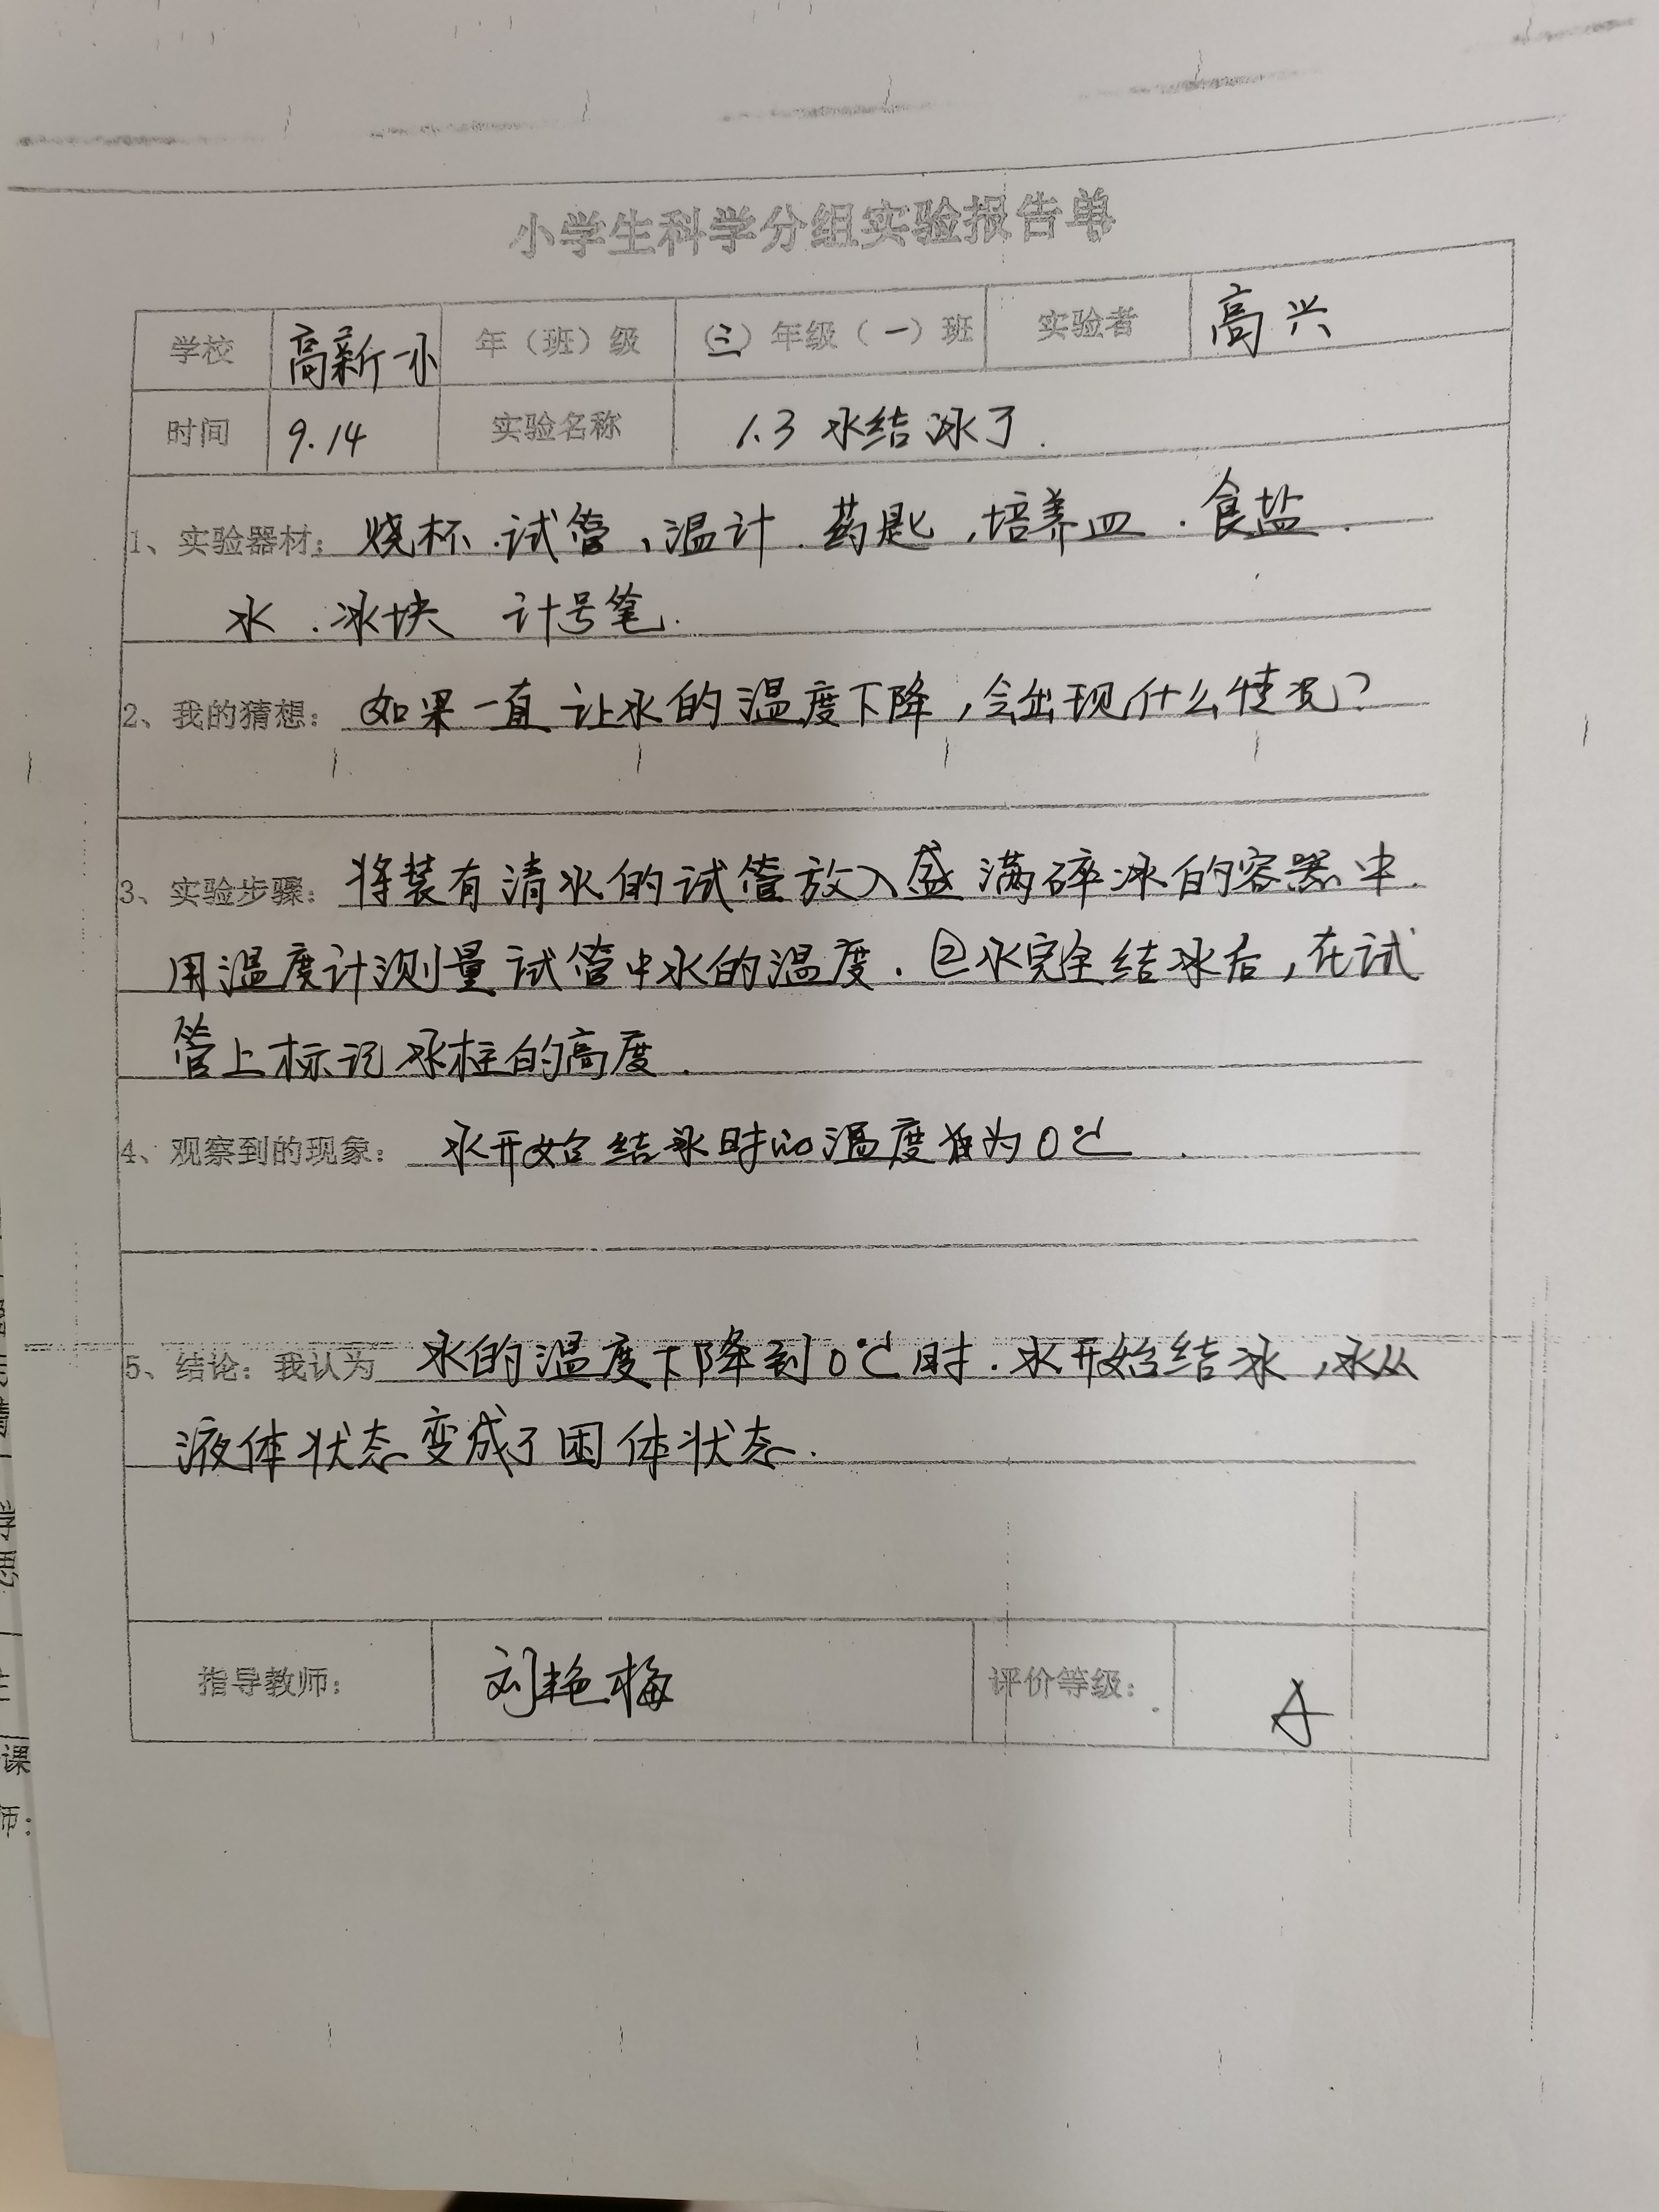 小学生科学分组实验报告单
学校 高新一小 年（班）级 （三）年级（一）班 实验者 高兴
时间 9.14 实验名称 1.3 水结冰了.
1、实验器材：烧杯.试管、温计.药匙,培养皿.食盐.
水.冰块 计号笔.
2、我的猜想：如果一直让水的温度下降,会出现什么情况?
3、实验步骤：将装有清水的试管放入盛满碎冰的容器中.
用温度计测量试管中水的温度.②水完全结冰后,在试
管上标记冰柱的高度.
4、观察到的现象：水开始结冰时的温度为0℃.
5、结论：我认为 水的温度下降到0℃时.水开始结冰,水从
液体状态变成了固体状态.
指导教师： 刘艳梅 评价等级： A
课
师：